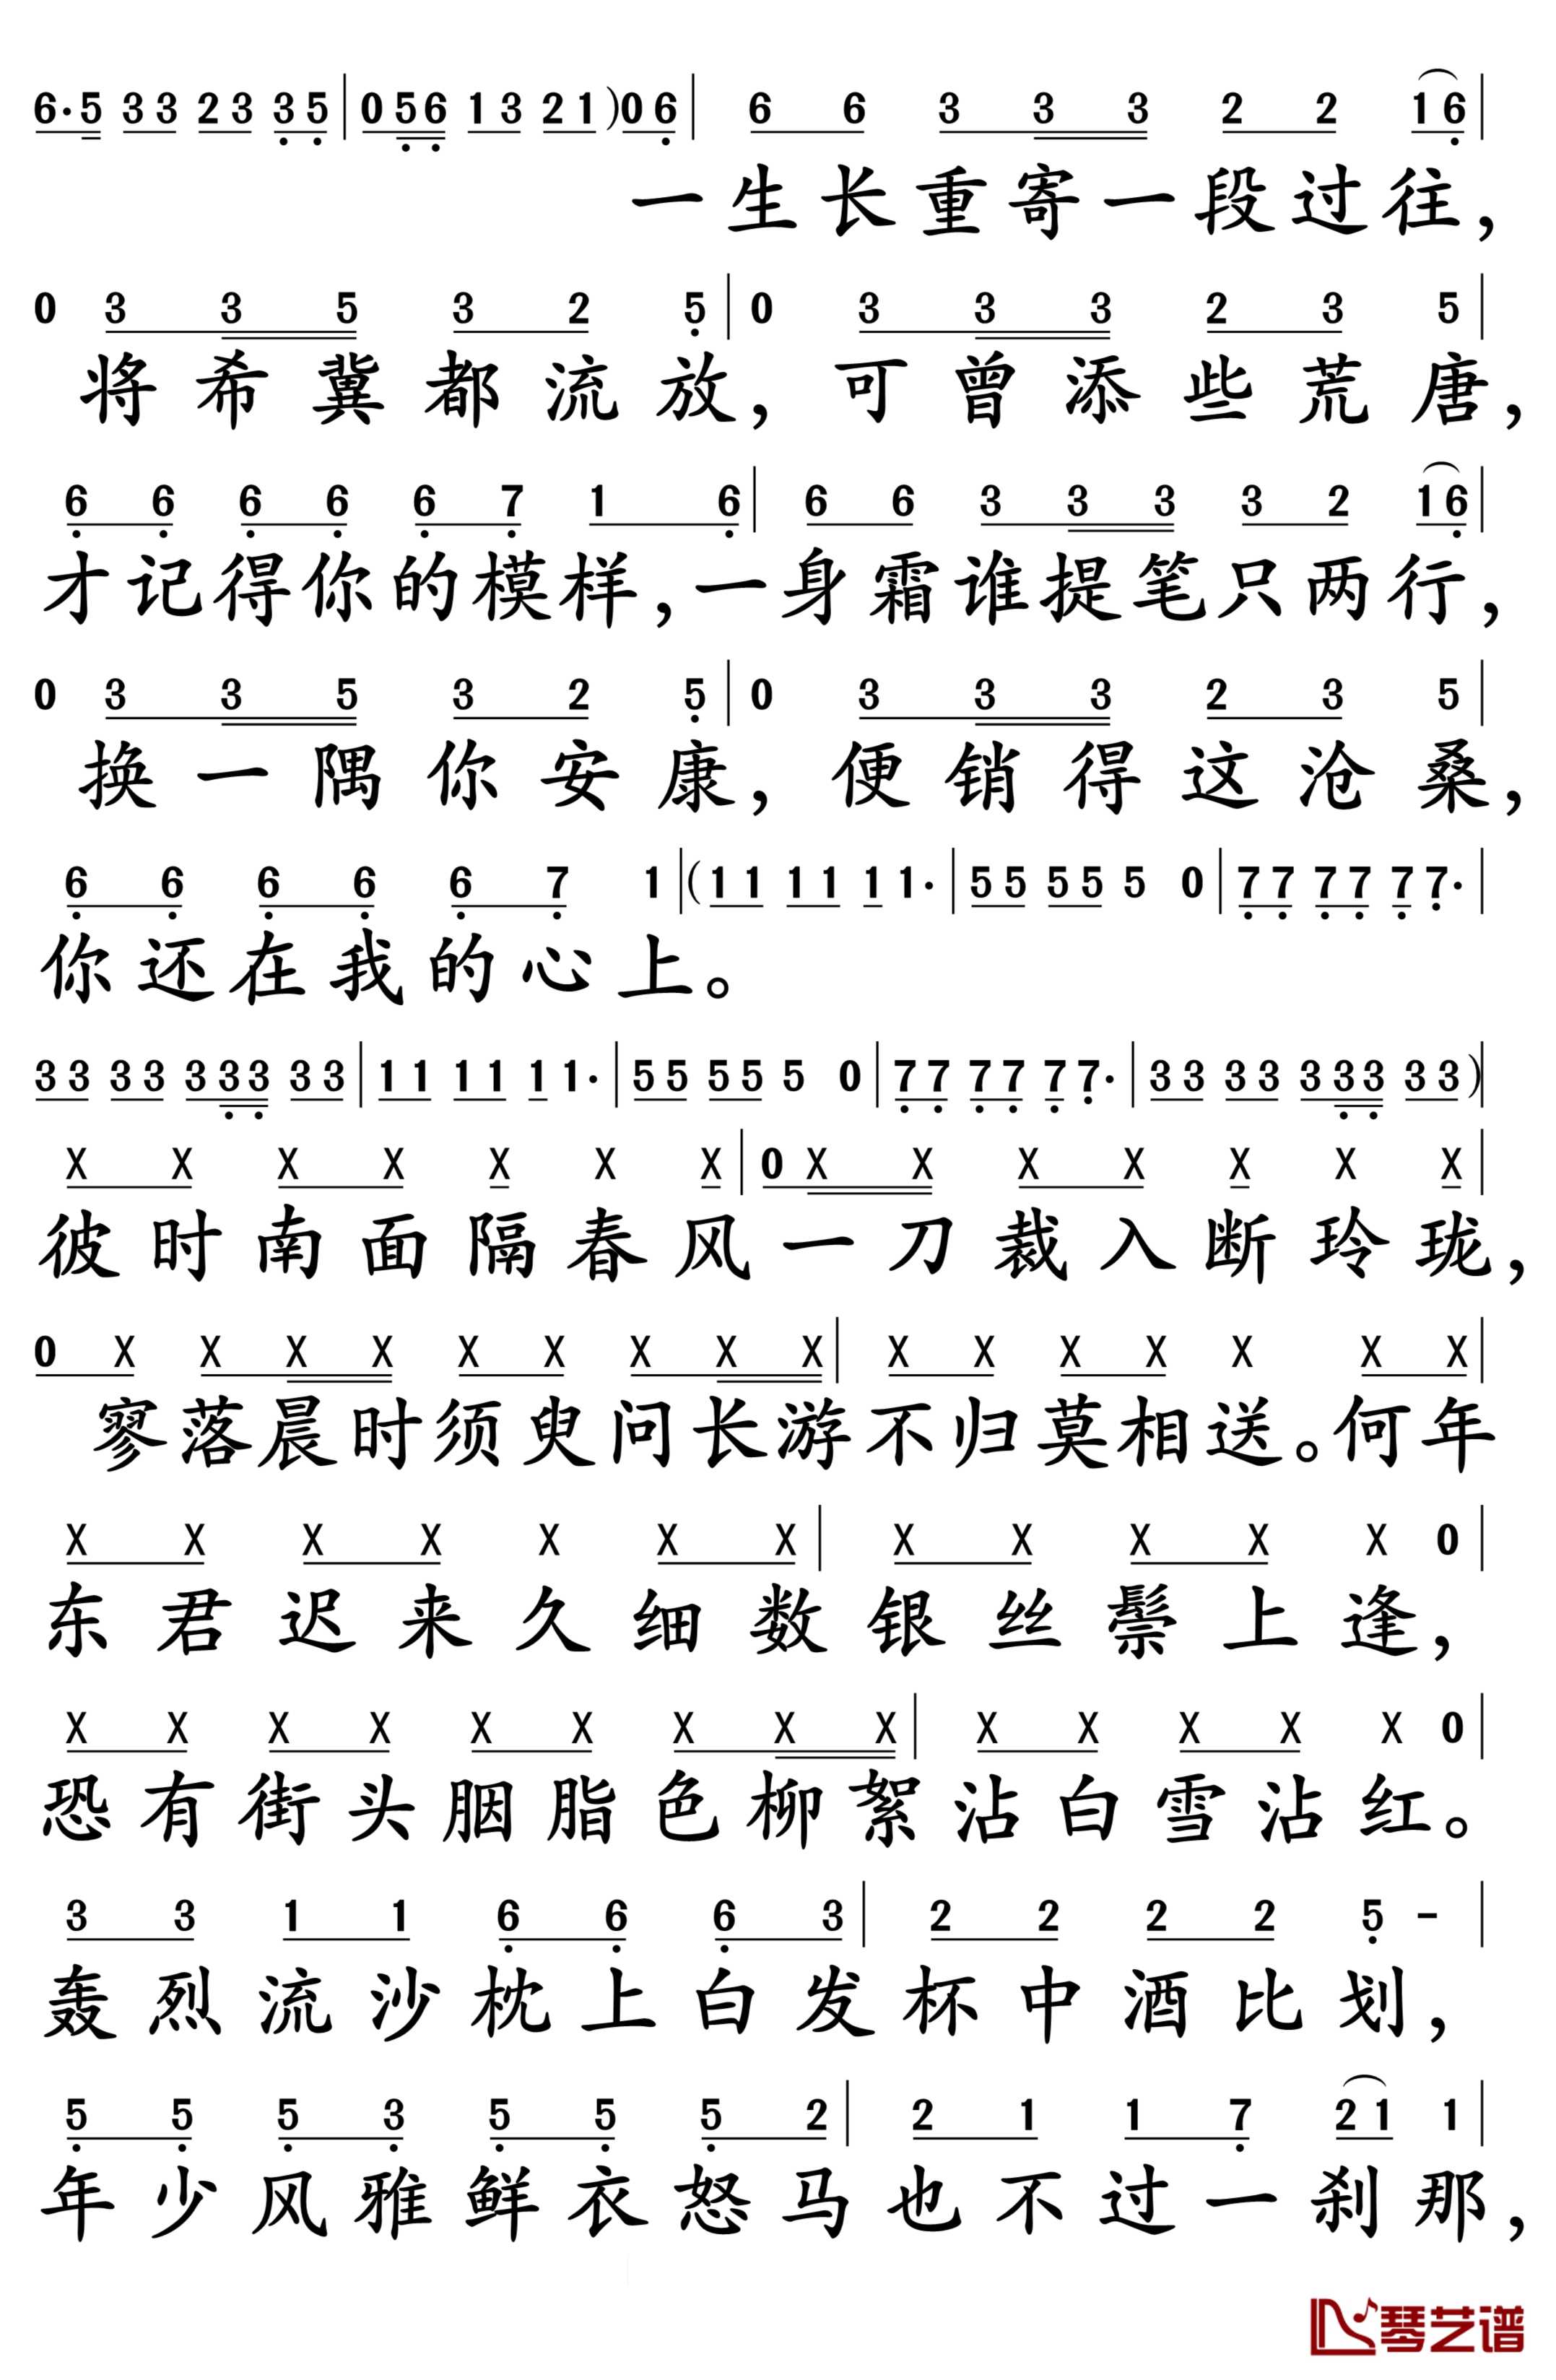 6·5 33 23 35|056 13 21)06| 6 6 3 3 3 2 2 16|
一生长重寄一段过往，
0 3 3 5 3 2 5|0 3 3 3 2 3 5|
将希冀都流放，可曾添些荒唐，
6 6 6 6 6 7 1 6|6 6 3 3 3 3 2 16|
才记得你的模样，一身霜谁提笔只两行，
0 3 3 5 3 2 5|0 3 3 3 2 3 5|
换一隅你安康，便销得这沧桑，
6 6 6 6 6 7 1|(11 11 1 1·|55 55 5 0|77 77 7 7·|
你还在我的心上。
33 33 333 33|11 11 1 1·|55 55 5 0|77 77 7 7·|33 33 333 33)|
X X X X X X X|0 X X X X X X X|
彼时南面隔春风一刀裁入断玲珑，
0 X X X X X X X X X|X X X X X X X|
寥落晨时须臾问长游不归莫相送。何年
X X X X X X X|X X X X X 0|
东君迟来久细数银丝鬃上逢，
X X X X X X X X X|X X X X X 0|
恐有街头胭脂色柳絮沾白雪沾红。
3 3 1 1 6 6 6 3|2 2 2 2 5 -|
轰烈流沙枕上白发杯中酒比划，
5 5 5 3 5 5 5 2|2 1 1 7 21 1|
年少风雅鲜衣怒马也不过一刹那，
琴艺谱